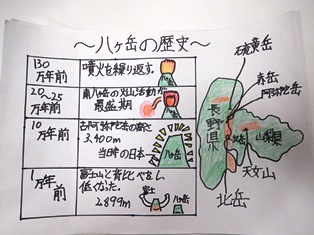 〜八ヶ岳の歴史〜
130
万年前
噴火を繰り返す。
20〜25
万年前
南八ヶ岳の火山活動が
最盛期
10
万年前
古阿弥陀岳の高さ
3,400m
当時の日本一
八ヶ岳
1
万年前
富士山と背比べをし
低くなった。
2,899m
富士
八ヶ岳
硫黄岳
赤岳
阿弥陀岳
長野県
山梨県
天女山
北岳